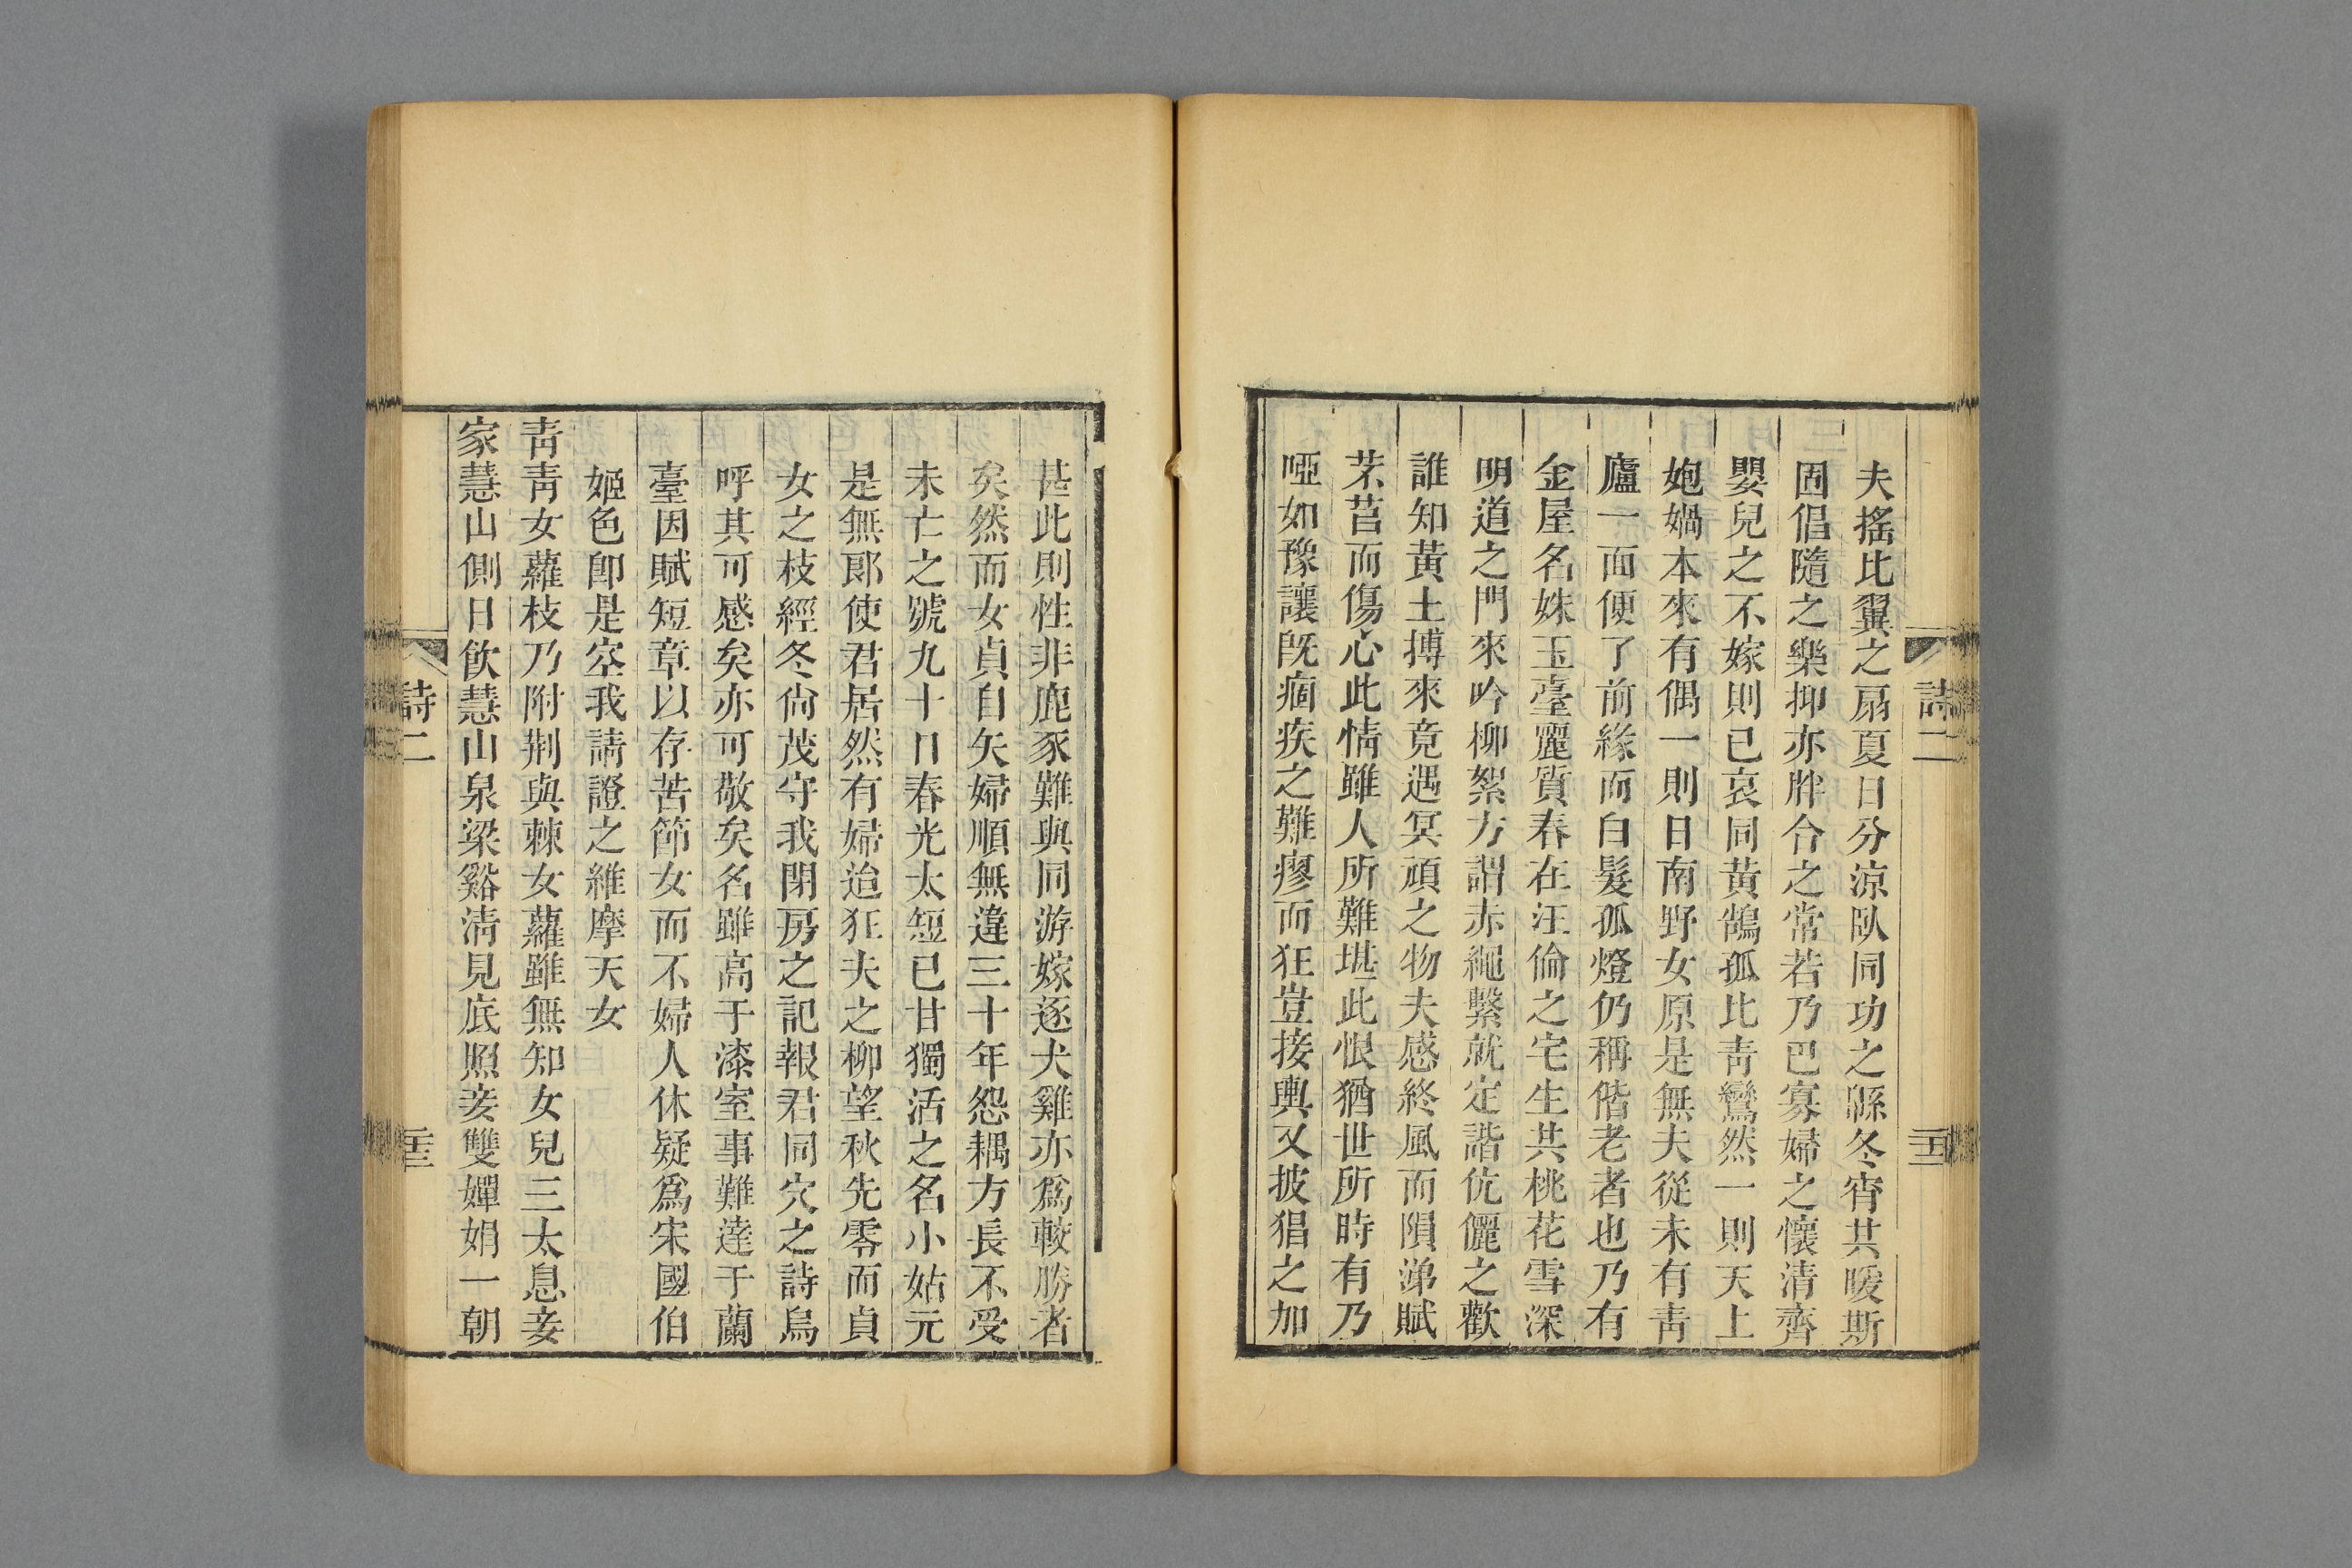 夫搖比翼之扇夏日分涼臥同功之緜冬宵共暖斯
固倡隨之樂抑亦牉合之常若乃巴寡婦之懷清齊
嬰兒之不嫁則已哀同黃鵠孤比靑鸞然一則天上
媿媧本來有偶一則日南野女原是無夫從未有靑
廬一面便了前緣而白髮孤燈仍稱偕老者也乃有
金屋名姝玉臺麗質春在汪倫之宅生共桃花雪深
明道之門來吟柳絮方謂赤繩繫就定諧伉儷之歡
誰知黃土摶來竟遇冥頑之物夫感終風而隕涕賦
芣苢而傷心此情雖人所難堪此恨猶世所時有乃
啞如豫讓旣痼疾之難瘳而狂豈接輿又披猖之加
詩二
甚此則性非鹿豕難與同游嫁逐犬雞亦爲較勝者
矣然而女貞自矢婦順無違三十年怨耦方長不受
未亡之號九十日春光太短已甘獨活之名小姑元
是無郞使君居然有婦迨狂夫之柳望秋先零而貞
女之枝經冬尙茂守我閉房之記報君同穴之詩烏
呼其可感矣亦可敬矣名雖高于漆室事難達于蘭
臺因賦短章以存苦節女而不婦人休疑爲宋國伯
姬色卽是空我請證之維摩天女
靑靑女蘿枝乃附荆與棘女蘿雖無知女兒三太息妾
家慧山側日飮慧山泉梁谿淸見底照妾雙嬋娟一朝
詩二